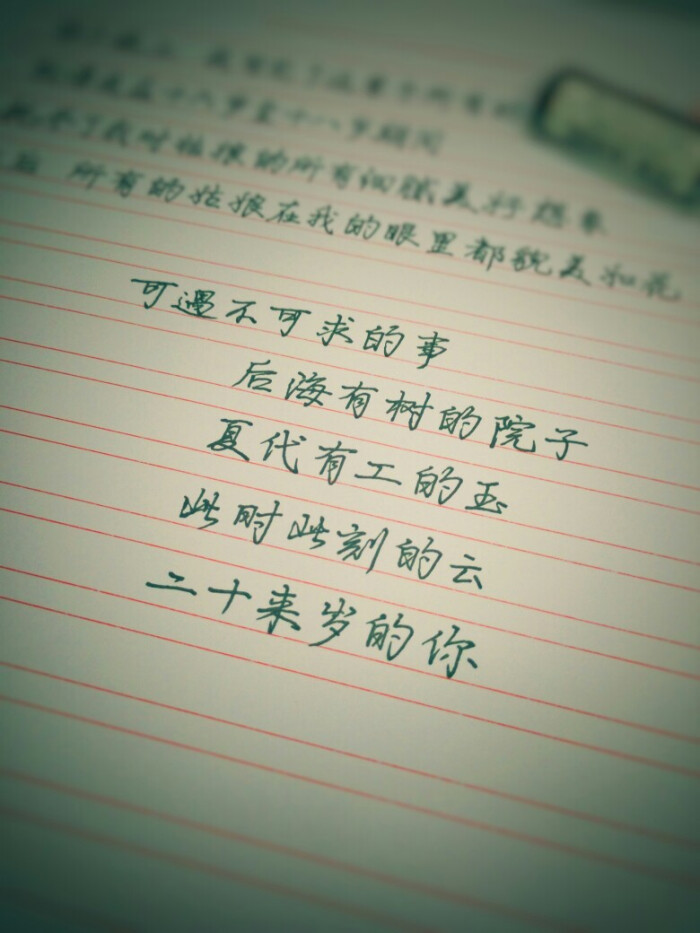 十八岁至十八岁期间
我对姑娘的所有细腻美好想象
所有的姑娘在我的眼里都貌美如花
可遇不可求的事
后海有树的院子
夏代有工的玉
此时此刻的云
二十来岁的你